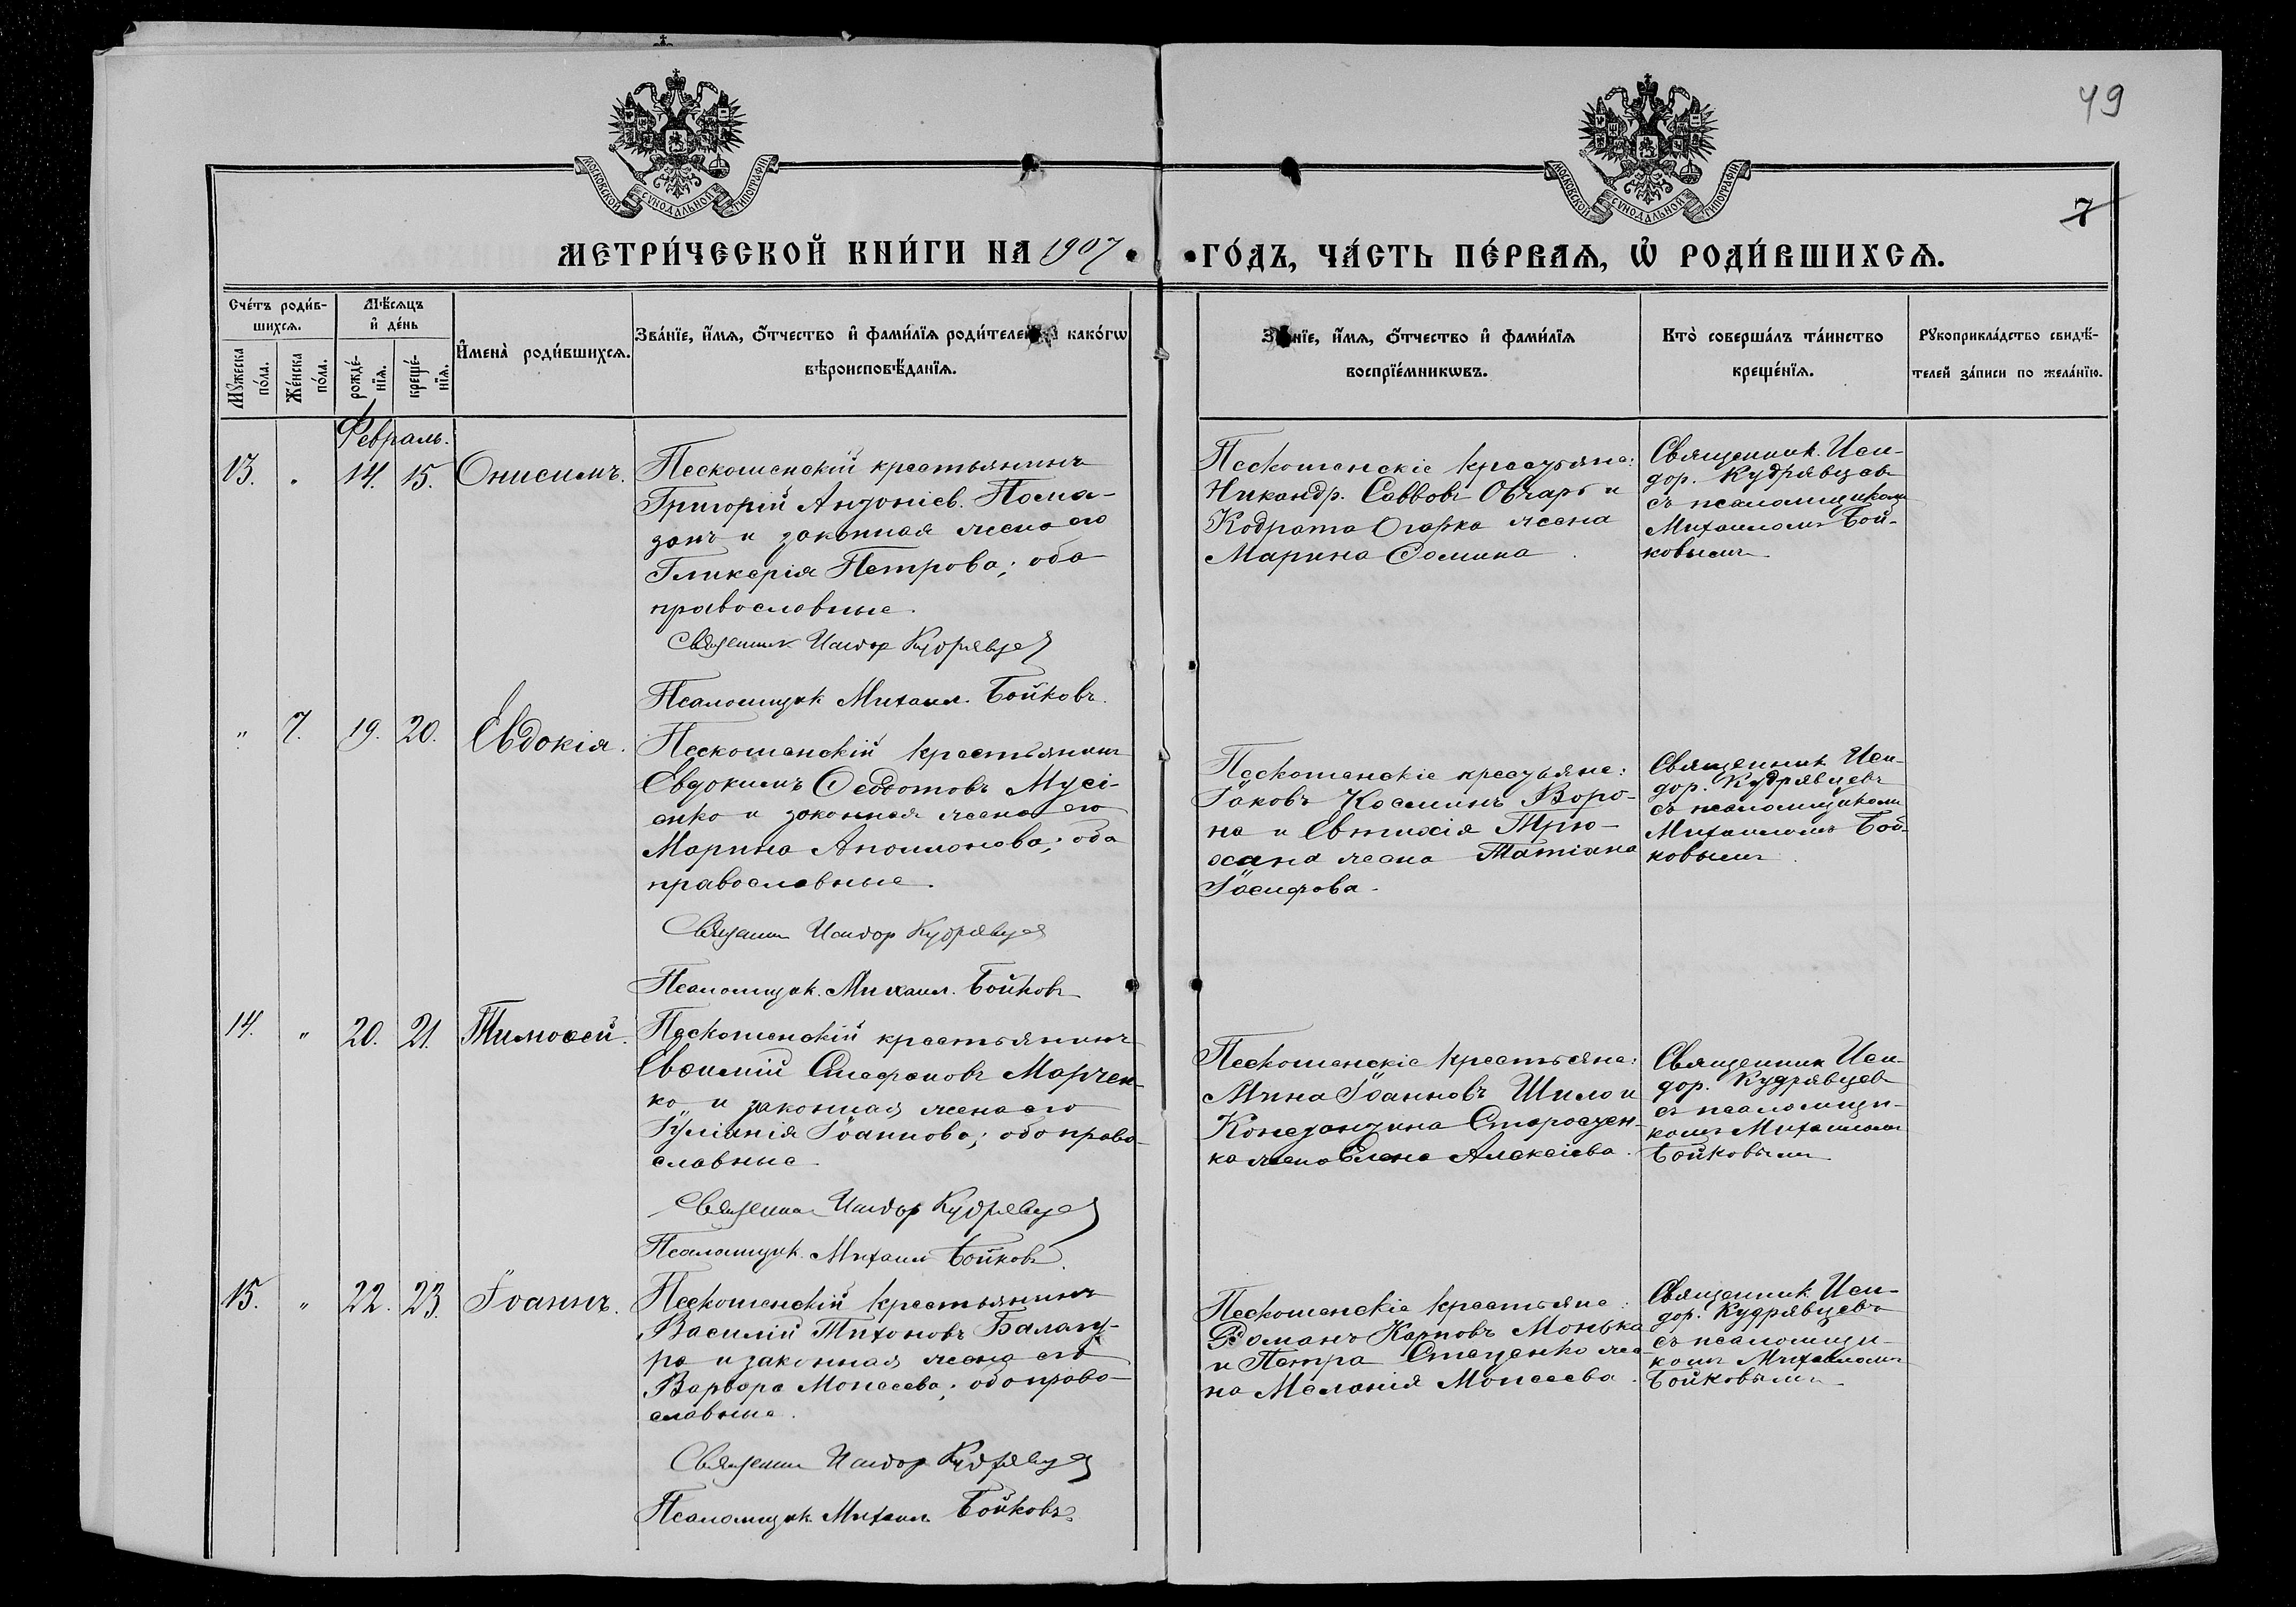 49
МОСКОВСКОЙ СѴНОДАЛЬНОЙ ТИПОГРАФІИ
МОСКОВСКОЙ СѴНОДАЛЬНОЙ ТИПОГРАФІИ
7
МЕТРИ́ЧЕСКОЙ КНИ́ГИ НА 1907
ГО́ДЪ, ЧА́СТЬ ПЕ́РВАѦ, Ѡ҆ РОДИ́ВШИХСѦ.
Сче́тъ роди́в-
шихсѧ.
Мꙋ́жеска
по́ла.
Же́нска
по́ла.
Мѣ́сѧцъ
и҆ де́нь
рожде́-
нїѧ.
креще́-
нїѧ.
И҆мена̀ роди́вшихсѧ.
Зва́нїе, и҆́мѧ, ѻ҆́тчество и҆ фами́лїѧ роди́телей и҆ како́гѡ
вѣроисповѣ́данїѧ.
Зва́нїе, и҆́мѧ, ѻ҆́тчество и҆ фами́лїѧ
воспрїе́мникѡвъ.
Кто̀ соверша́лъ та́инство
креще́нїѧ.
Рꙋкоприкла́дство свидѣ́-
телей за́писи по жела́нїю.
Февраль.
13. " 14. 15. Онисимъ.
Пескошанскій крестьянинъ
Григорій Антоніев. Пома-
занъ и законная жена его
Гликерія Петрова; оба
православные.
Священник Исидор Кудрявцев
Псаломщик Михаил. Бойковъ.
Пескошанскіе крестьяне:
Никандр. Саввовъ Овчаръ и
Кодрата Огарка жена
Марина Сомина
Священник. Иси-
дор. Кудрявцевъ
съ псаломщикомъ
Михаиломъ Бой-
ковымъ
" 7. 19. 20. Евдокія.
Пескошанскій крестьянинъ
Евдокимъ Ѳеодотовъ Мусі-
енко и законная жена его
Марина Аполлонова; оба
православные.
Священник Исидор Кудрявцев
Псаломщик. Михаил. Бойковъ
Пескошанскіе крестьяне:
Іаковъ Косминъ Воро-
на и Евтихія Трю-
хана жена Татіана
Іосифова.
Священник Иси-
дор. Кудрявцевъ
съ псаломщикомъ
Михаиломъ Бой-
ковымъ
14. " 20. 21. Тимоѳей.
Пескошанскій крестьянинъ
Евѳимій Стефановъ Марчен-
ко и законная жена его
Іуліанія Іоаннова; оба право-
славные
Священник Исидор Кудрявцев
Псаломщик. Михаил Бойковъ.
Пескошанскіе крестьяне:
Мина Іоанновъ Шило и
Константина Старосчен-
ка жена Елена Алексіева.
Священник Иси-
дор. Кудрявцевъ
съ псаломщи-
комъ Михаиломъ
Бойковымъ
15. " 22. 23. Іоаннъ.
Пескошанскій крестьянинъ
Василій Тихоновъ Балагу-
ра и законная жена его
Варвара Моисеева; оба право-
славные.
Священник Исидор Кудрявцев
Псаломщик Михаил Бойковъ.
Пескошанскіе крестьяне:
Романъ Карповъ Монька
и Петра Стеценко же-
на Меланія Моисеева.
Священник. Иси-
дор. Кудрявцевъ
съ псаломщи-
комъ Михаиломъ
Бойковымъ